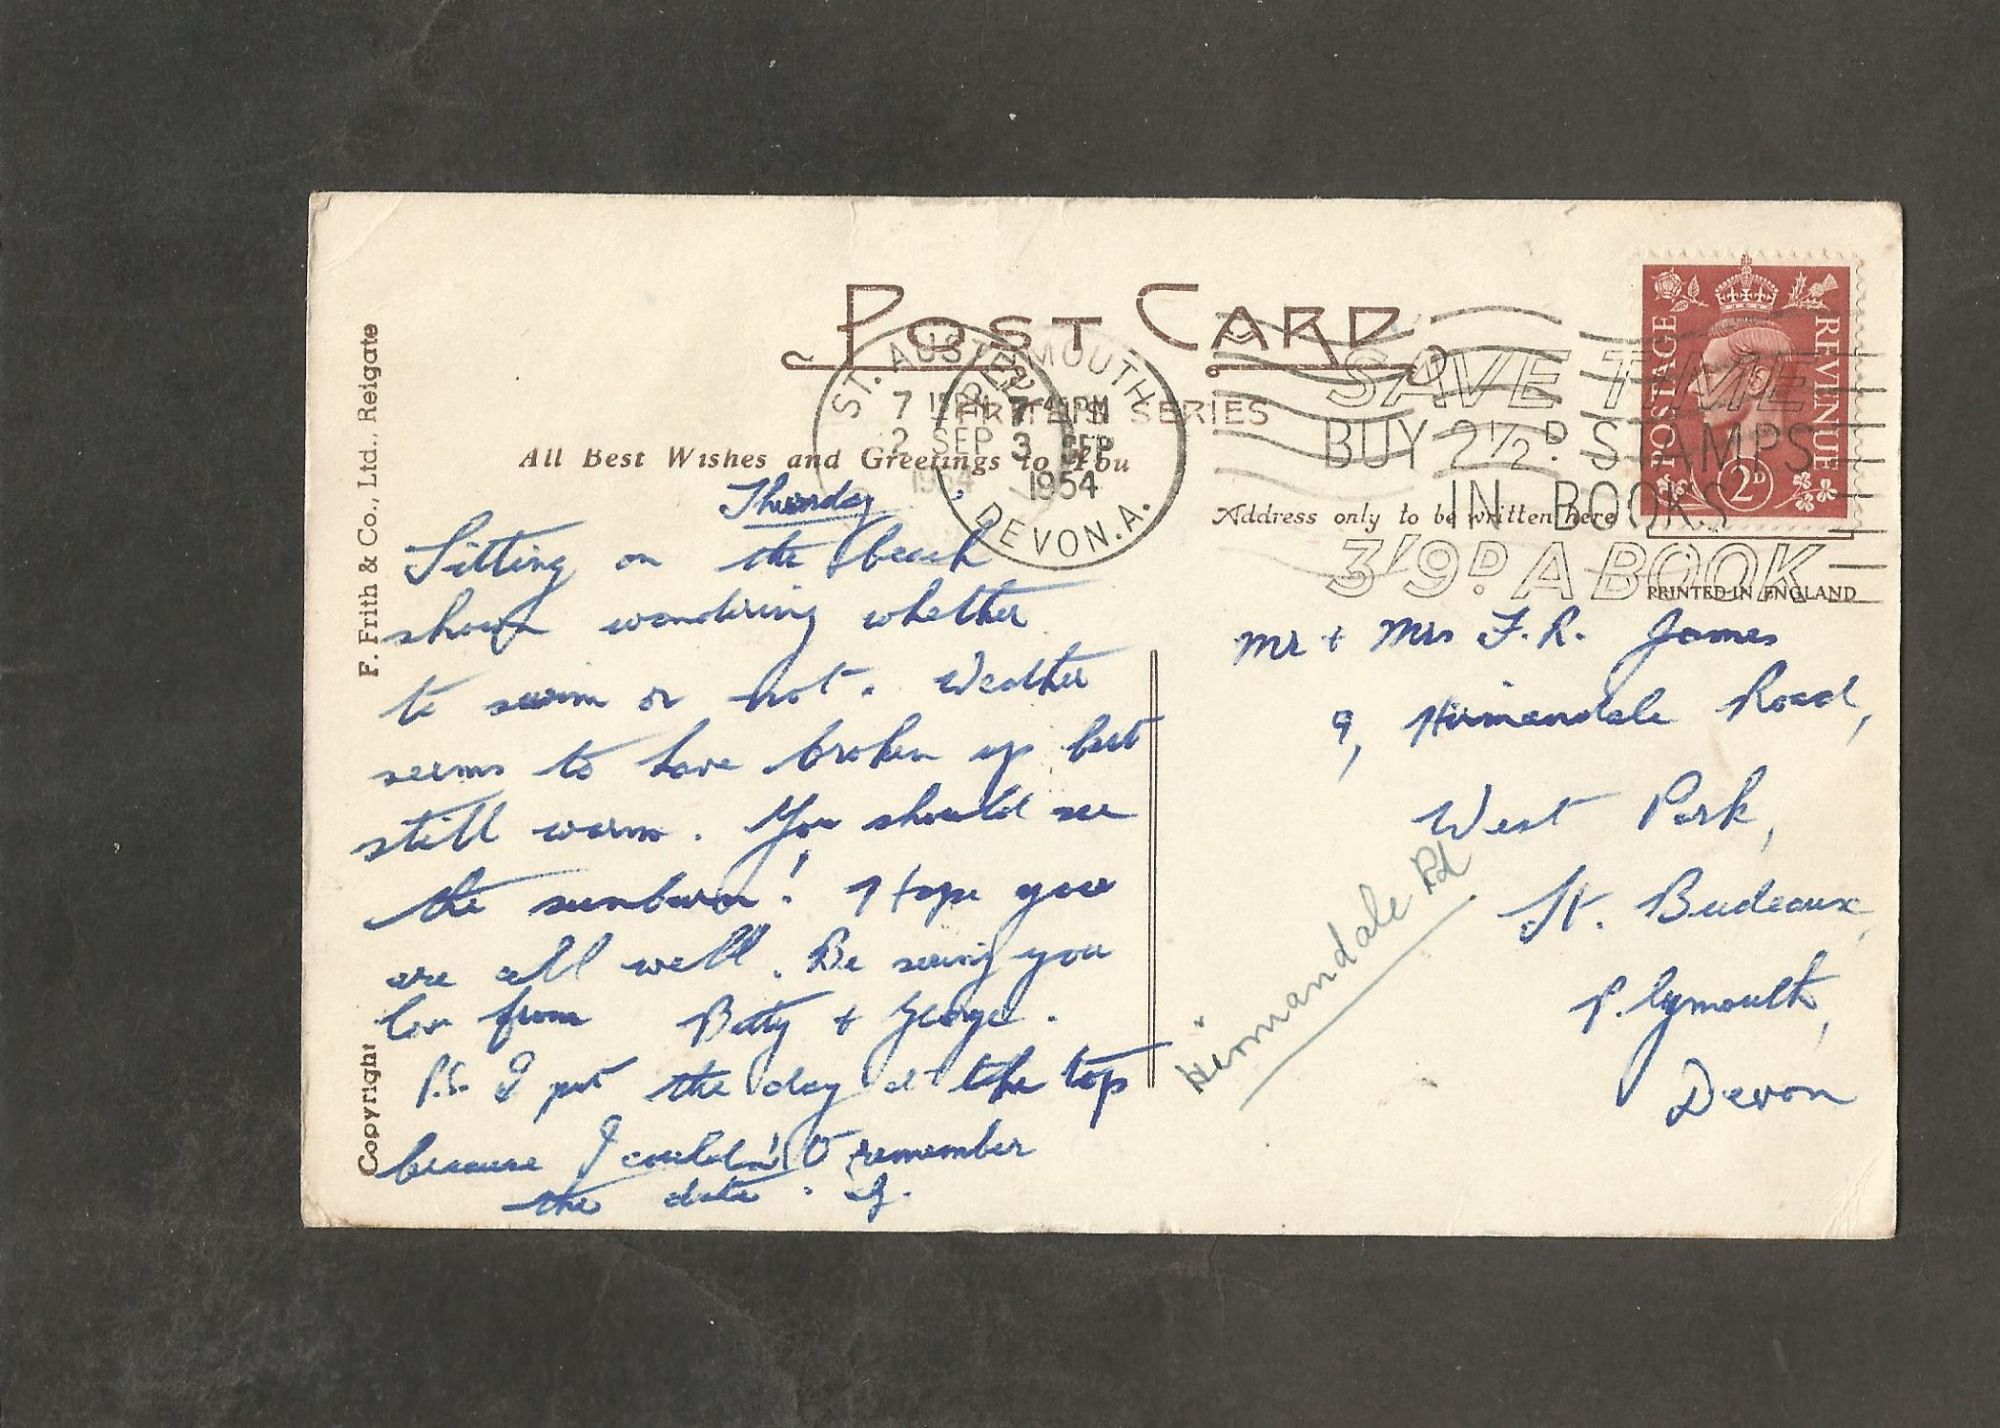 POST CARD
FRITH'S SERIES
All Best Wishes and Greetings to You
F. Frith & Co., Ltd., Reigate
Copyright
ST. AUSTELL
7 15 PM
2 SEP
1954
PLYMOUTH
7 45 PM
3 SEP
1954
DEVON.A.
SAVE TIME
BUY 2½D. STAMPS
IN BOOKS
3/9D. A BOOK
POSTAGE
REVENUE
2D
Address only to be written here
PRINTED IN ENGLAND
Thursday
Sitting on the beach
wondering whether
to swim or not. Weather
seems to have broken up but
still warm. You should see
the sunburn! Hope you
are all well. Be seeing you
love from Betty & George.
P.S. I put the day at the top
because I couldn't remember
the date. G.
Mr & Mrs F. R. James
9, Hirmandale Road,
West Park,
St. Budeaux,
Plymouth,
Devon
Hirmandale Rd